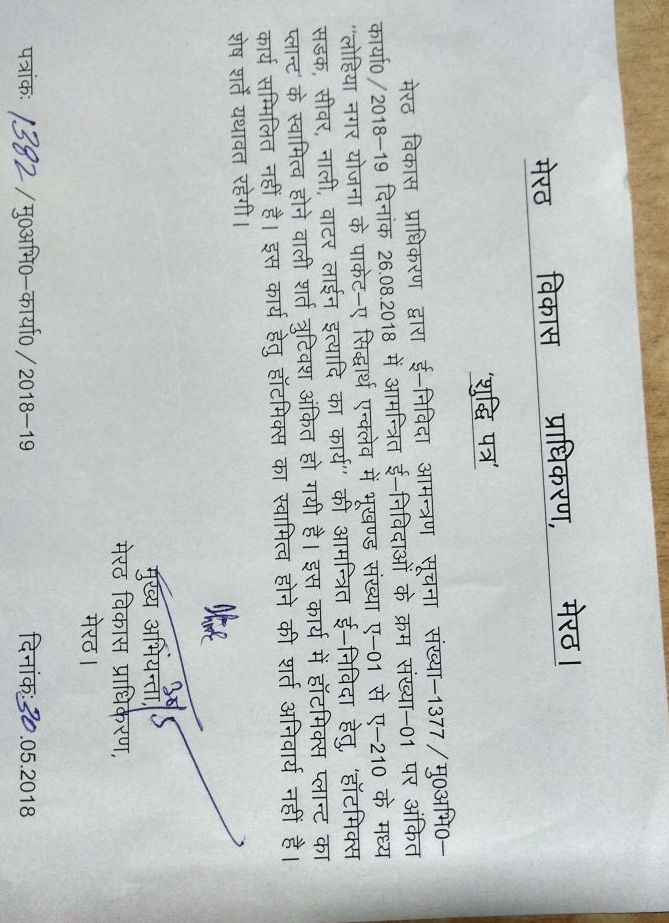 मेरठ विकास प्राधिकरण, मेरठ।
'शुद्धि पत्र'
मेरठ विकास प्राधिकरण द्वारा ई–निविदा आमन्त्रण सूचना संख्या–1377 / मु0अभि0–
कार्या0 / 2018–19 दिनांक 26.08.2018 में आमन्त्रित ई–निविदाओं के क्रम संख्या–01 पर अंकित
"लोहिया नगर योजना के पाकेट–ए सिद्धार्थ एन्क्लेव में भूखण्ड संख्या ए–01 से ए–210 के मध्य
सडक, सीवर, नाली, वाटर लाईन इत्यादि का कार्य" की आमन्त्रित ई–निविदा हेतु, 'हॉटमिक्स
प्लान्ट' के स्वामित्व होने वाली शर्त त्रुटिवश अंकित हो गयी है। इस कार्य में हॉटमिक्स प्लान्ट का
कार्य सम्मिलित नहीं है। इस कार्य हेतु हॉटमिक्स का स्वामित्व होने की शर्त अनिवार्य नहीं है।
शेष शर्ते यथावत रहेगी।
मुख्य अभियन्ता,
मेरठ विकास प्राधिकरण,
मेरठ।
पत्रांक: 1382 / मु0अभि0–कार्या0 / 2018–19 दिनांक: 30.05.2018